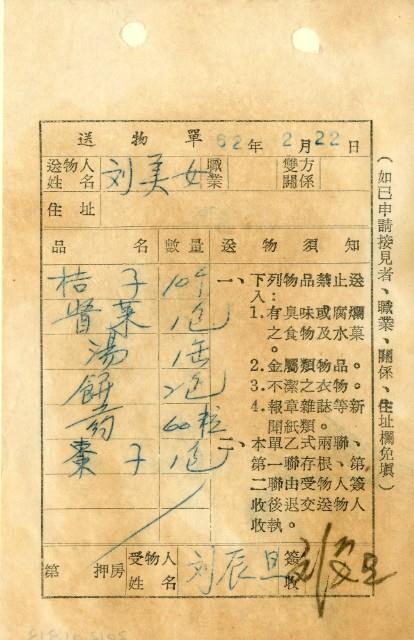 送物單 62年2月22日
送物人姓名 刘美女 職業 雙方關係
住址
品名 數量 送物須知
桔子 10个
督菜 1包
湯 1缶
餅 2包
药 60粒
棗子 1包
一、下列物品禁止送入：
1.有臭味或腐爛之食物及水菓。
2.金屬類物品。
3.不潔之衣物。
4.報章雜誌等新聞紙類。
二、本單乙式兩聯、第一聯存根、第二聯由受物人簽收後退交送物人收執。
第 押房 受物人姓名 刘辰旦 簽收 刘辰旦
（如已申請接見者、職業、關係、住址欄免填）